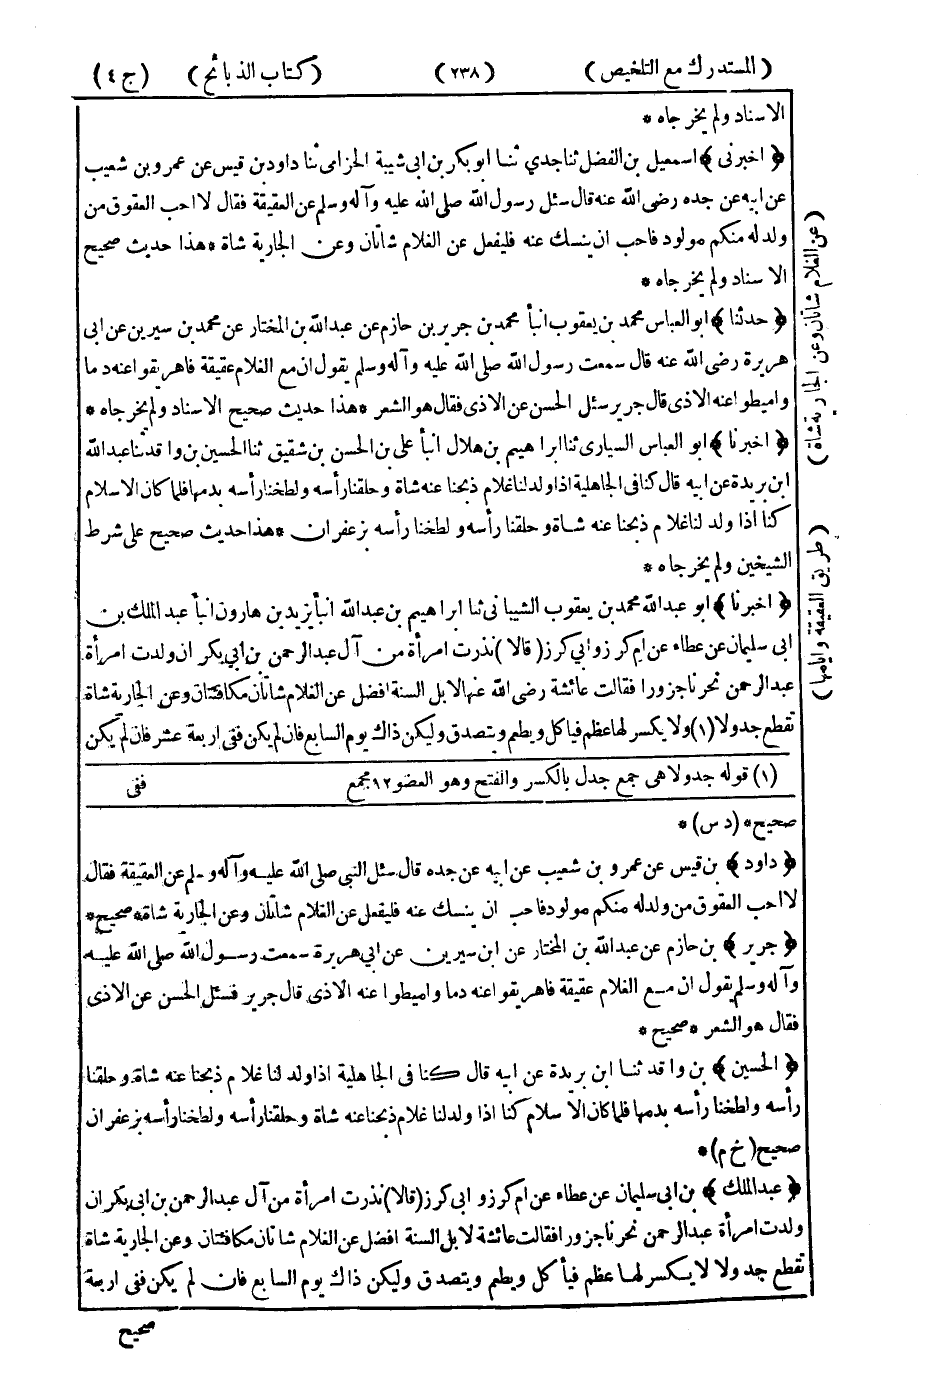 (المستدرك مع التلخيص) (٢٣٨) (كتاب الذبائح) (ج ٤)
الاسناد ولم يخرجاه *
﴿ اخبرنى ﴾ اسمعيل بن الفضل ثنا جدي ثنا ابو بكر بن ابى شيبة الحزامى ثنا داود بن قيس عن عمرو بن شعيب
عن ابيه عن جده رضى الله عنه قال سئل رسول الله صلى الله عليه وآله وسلم عن العقيقة فقال لا احب العقوق من
ولد له منكم مولود فاحب ان ينسك عنه فليفعل عن الغلام شاتان وعن الجارية شاة * هذا حديث صحيح
الاسناد ولم يخرجاه *
﴿ حدثنا ﴾ ابو العباس محمد بن يعقوب انبأ محمد بن جرير بن حازم عن عبدالله بن المختار عن محمد بن سيرين عن ابى
هريرة رضى الله عنه قال سمعت رسول الله صلى الله عليه وآله وسلم يقول ان مع الغلام عقيقة فاهريقوا عنه دما
واميطوا عنه الاذى قال جرير سئل الحسن عن الاذى فقال هو الشعر * هذا حديث صحيح الاسناد ولم يخرجاه *
﴿ اخبرنا ﴾ ابو العباس السيارى ثنا ابراهيم بن هلال انبأ على بن الحسن بن شقيق ثنا الحسين بن واقد ثنا عبدالله
ابن بريدة عن ابيه قال كنا فى الجاهلية اذا ولد لنا غلام ذبحنا عنه شاة وحلقنا رأسه ولطخنا رأسه بدمها فلما كان الاسلام
كنا اذا ولد لنا غلام ذبحنا عنه شاة وحلقنا رأسه ولطخنا رأسه بزعفران * هذا حديث صحيح على شرط
الشيخين ولم يخرجاه *
﴿ اخبرنا ﴾ ابو عبدالله محمد بن يعقوب الشيبانى ثنا ابراهيم بن عبدالله انبأ يزيد بن هارون انبأ عبد الملك بن
ابى سليمان عن عطاء عن ام كرز وابي كرز (قالا) نذرت امرأة من آل عبدالرحمن بن ابي بكر ان ولدت امرأة
عبدالرحمن نحرنا جزورا فقالت عائشة رضى الله عنها لا بل السنة افضل عن الغلام شاتان مكافئتان وعن الجارية شاة
تقطع جدولا (١) ولا يكسر لها عظم فيأكل ويطعم ويتصدق وليكن ذاك يوم السابع فان لم يكن ففى اربعة عشر فان لم يكن
(١) قوله جدولا هى جمع جدل بالكسر والفتح وهو العضو ١٢ مجمع ففى
صحيح * (د س) *
﴿ داود ﴾ بن قيس عن عمرو بن شعيب عن ابيه عن جده قال سئل النبى صلى الله عليه وآله وسلم عن العقيقة فقال
لا احب العقوق من ولد له منكم مولود فاحب ان ينسك عنه فليفعل عن الغلام شاتان وعن الجارية شاة * صحيح *
﴿ جرير ﴾ بن حازم عن عبدالله بن المختار عن ابن سيرين عن ابي هريرة سمعت رسول الله صلى الله عليه
وآله وسلم يقول ان مع الغلام عقيقة فاهريقوا عنه دما واميطوا عنه الاذى قال جرير فسئل الحسن عن الاذى
فقال هو الشعر * صحيح *
﴿ الحسين ﴾ بن واقد ثنا ابن بريدة عن ابيه قال كنا فى الجاهلية اذا ولد لنا غلام ذبحنا عنه شاة وحلقنا
رأسه ولطخنا رأسه بدمها فلما كان الاسلام كنا اذا ولد لنا غلام ذبحنا عنه شاة وحلقنا رأسه ولطخنا رأسه بزعفران
صحيح (خ م) *
﴿ عبدالملك ﴾ بن ابى سليمان عن عطاء عن ام كرز و ابى كرز (قالا) نذرت امرأة من آل عبدالرحمن بن ابى بكر ان
ولدت امرأة عبدالرحمن نحرنا جزورا فقالت عائشة لا بل السنة افضل عن الغلام شاتان مكافئتان وعن الجارية شاة
تقطع جدولا لا يكسر لها عظم فيأكل ويطعم ويتصدق وليكن ذاك يوم السابع فان لم يكن ففى اربعة
صحيح
(عن الغلام شاتان وعن الجارية شاة)
(طريق العقيقة وايامها)